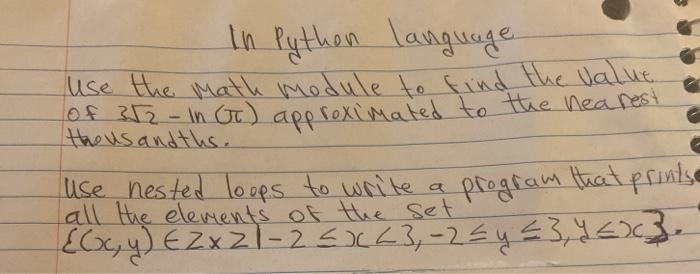 In Python language
Use the Math module to find the value
of 3√2 - ln(π) approximated to the nearest
thousandths.
Use nested loops to write a program that prints
all the elements of the set
{(x,y) ∈ Z x Z | -2 ≤ x < 3, -2 ≤ y ≤ 3, y ≤ x}.